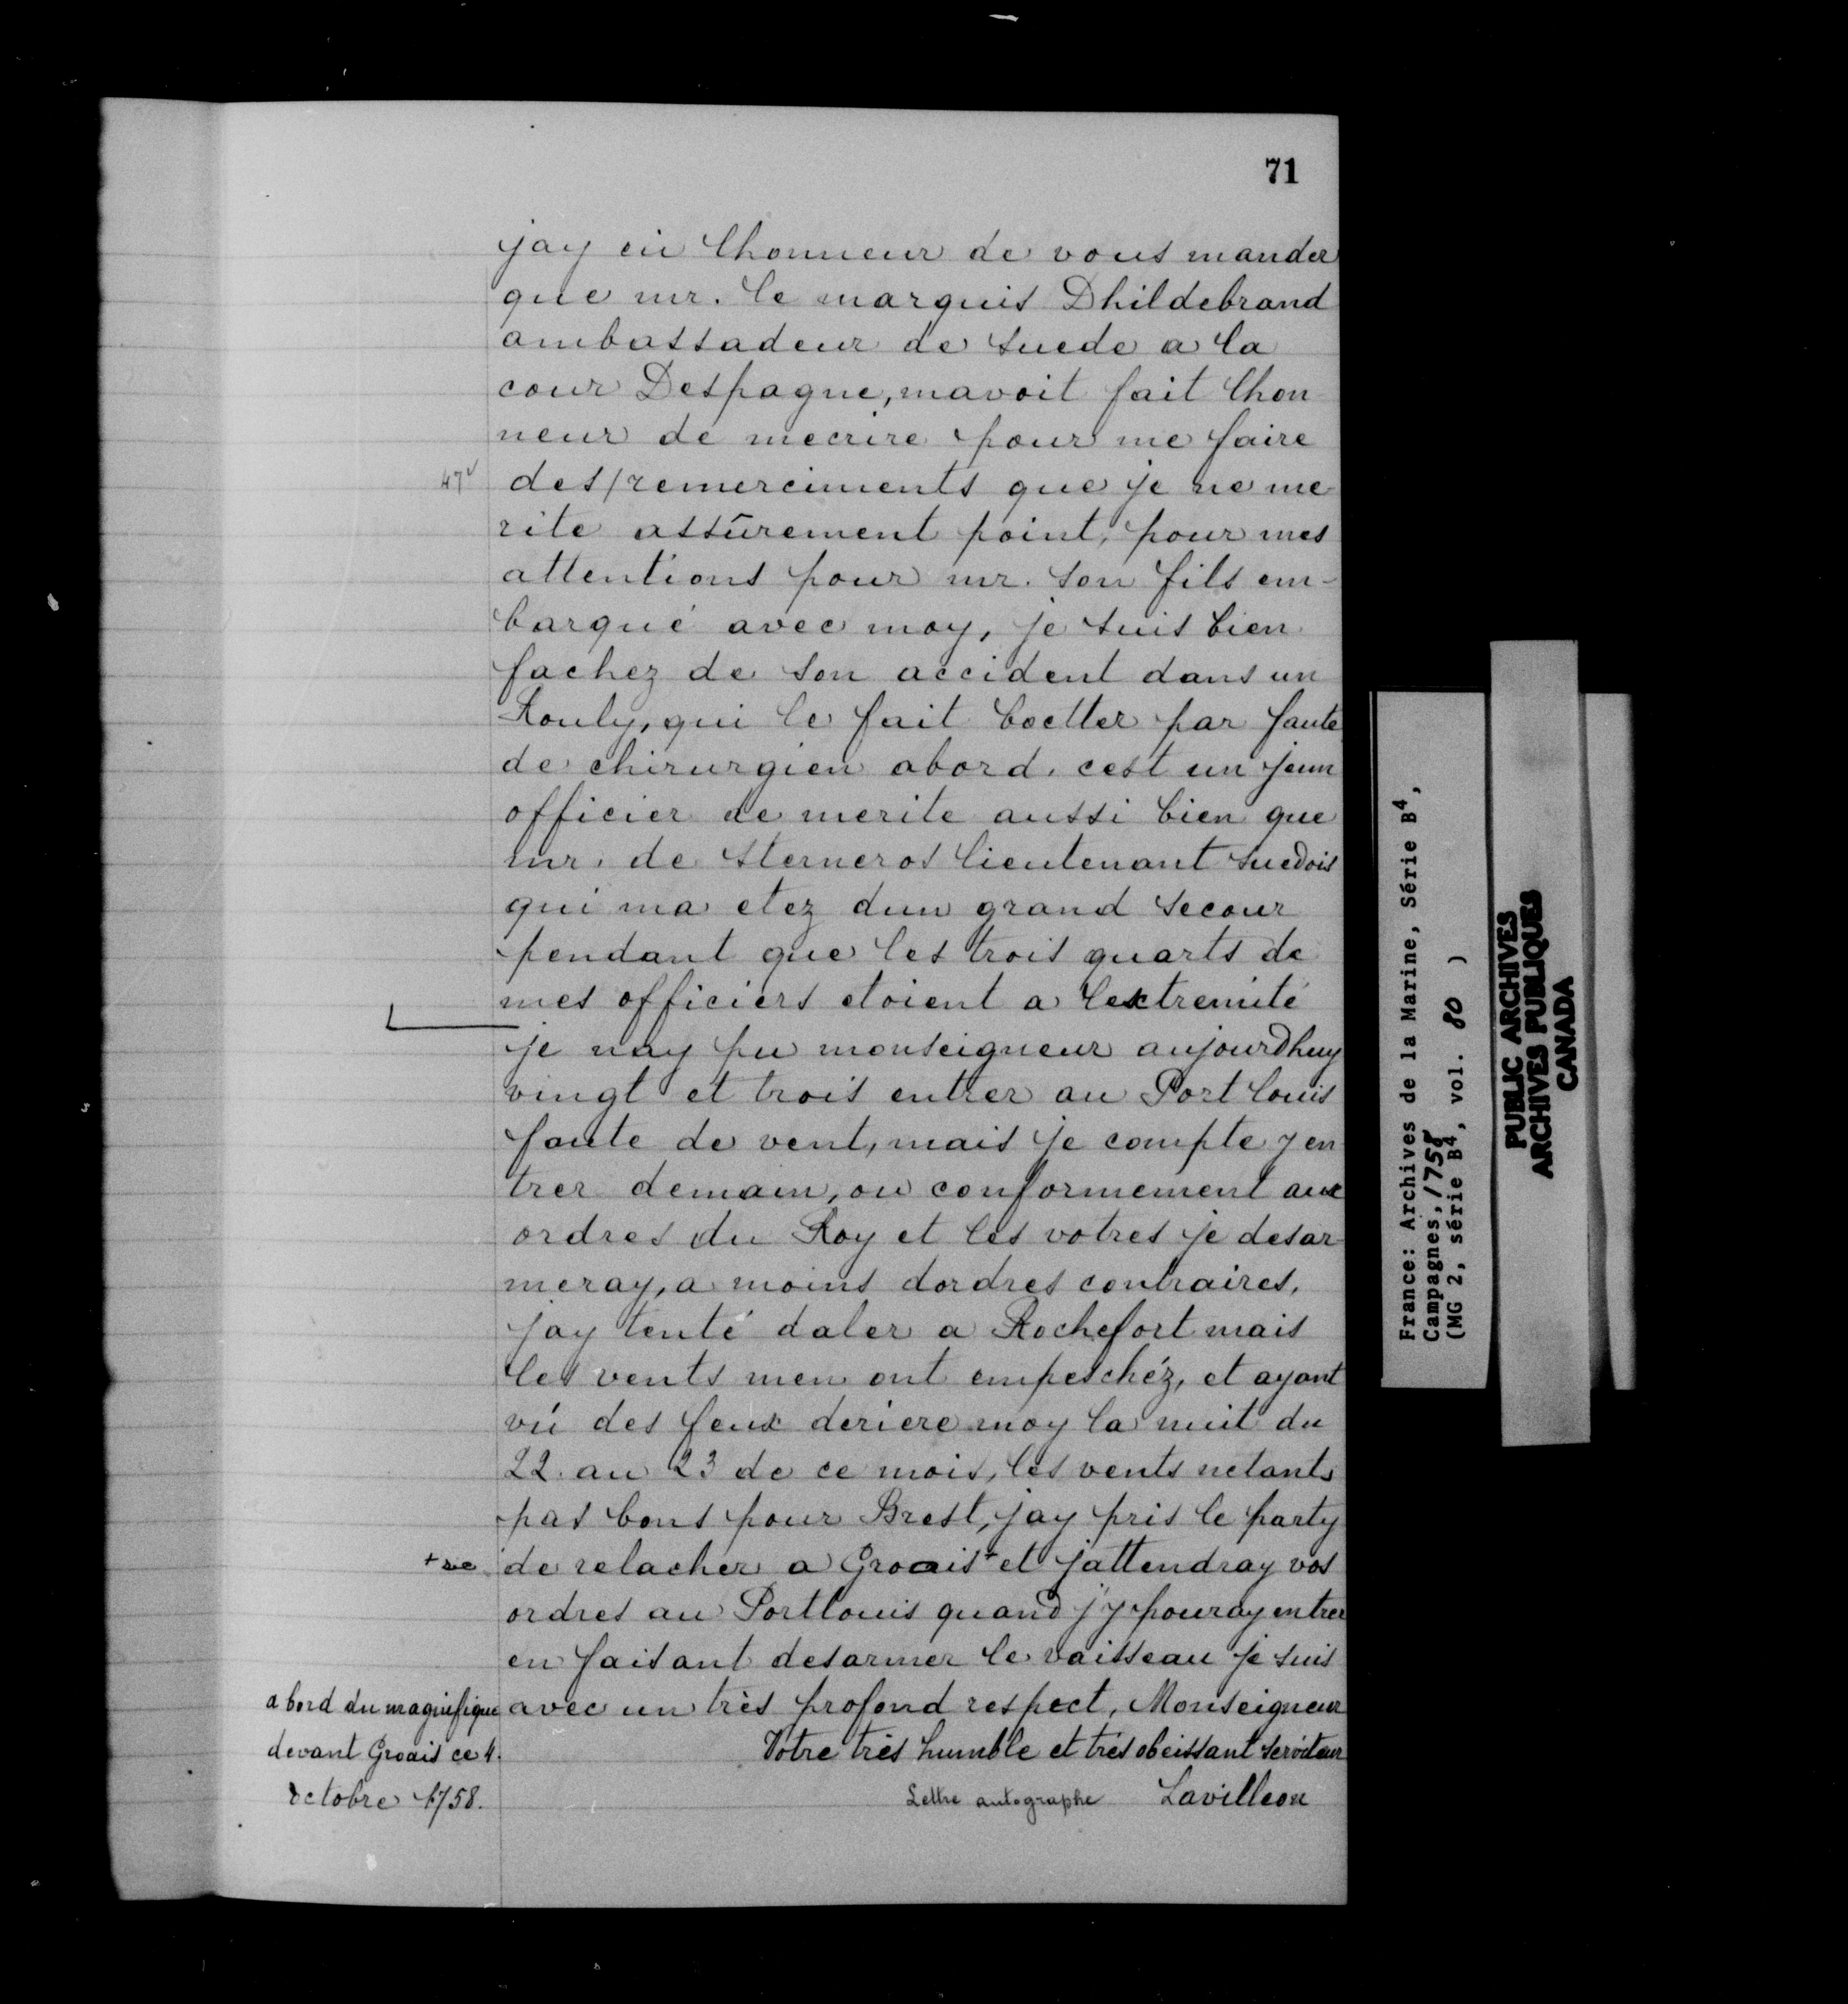 71
jay eü lhonneur de vous mander
que mr. le marquis Dhildebrand
ambassadeur de suede a la
cour Despagne, mavoit fait lhon
neur de mecrire pour me faire
47v des/remerciments que je ne me
rite assûrement point, pour mes
attentions pour mr. son fils em-
barqué avec moy, je suis bien
fachez de son accident dans un
Rouly, qui le fait boetter par faute
de chirurgien abord. cest un jeun
officier de merite aussi bien que
mr. de sterneros lieutenant suedois
qui ma etez dun grand secour
pendant que les trois quarts de
mes officiers etoient a lextremité
je nay pu monseigneur aujourdhuy
vingt et trois entrer au Port louis
faute de vent, mais je compte y en
trer demain, ou conformement aux
ordres du Roy et les votres je desar-
meray, a moins dordres contraires,
jay tenté daler a Rochefort mais
les vents men ont empeschéz, et ayant
vü des feux deriere moy la nuit du
22 au 23 de ce mois, les vents netants
pas bons pour Brest, jay pris le party
+ de relacher a Groais+ et jattendray vos
ordres au Portlouis quand j'y pouray entrer
en faisant desarmer le vaisseau je suis
avec un très profond respect, Monseigneur
Votre très humble et très obeissant serviteur
Lettre autographe Lavilleon
a bord du magnifique
devant Groais ce 4.
octobre 1758.
France: Archives de la Marine, Série B4,
Campagnes, 1758
(MG 2, série B4, vol. 80 )
PUBLIC ARCHIVES
ARCHIVES PUBLIQUES
CANADA